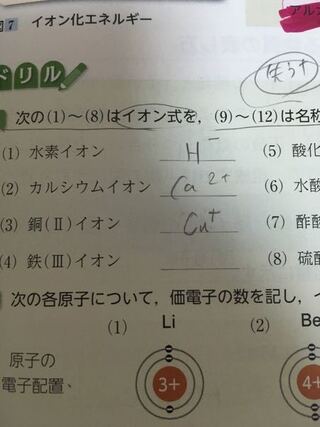 図7 イオン化エネルギー
ドリル
失う+
次の(1)～(8)はイオン式を，(9)～(12)は名称
(1) 水素イオン H⁻ (5) 酸化
(2) カルシウムイオン Ca²⁺ (6) 水酸
(3) 銅(Ⅱ)イオン Cu⁺ (7) 酢酸
(4) 鉄(Ⅲ)イオン (8) 硫酸
次の各原子について，価電子の数を記し，イ
(1) Li (2) Be
原子の
電子配置、
3+ 4+